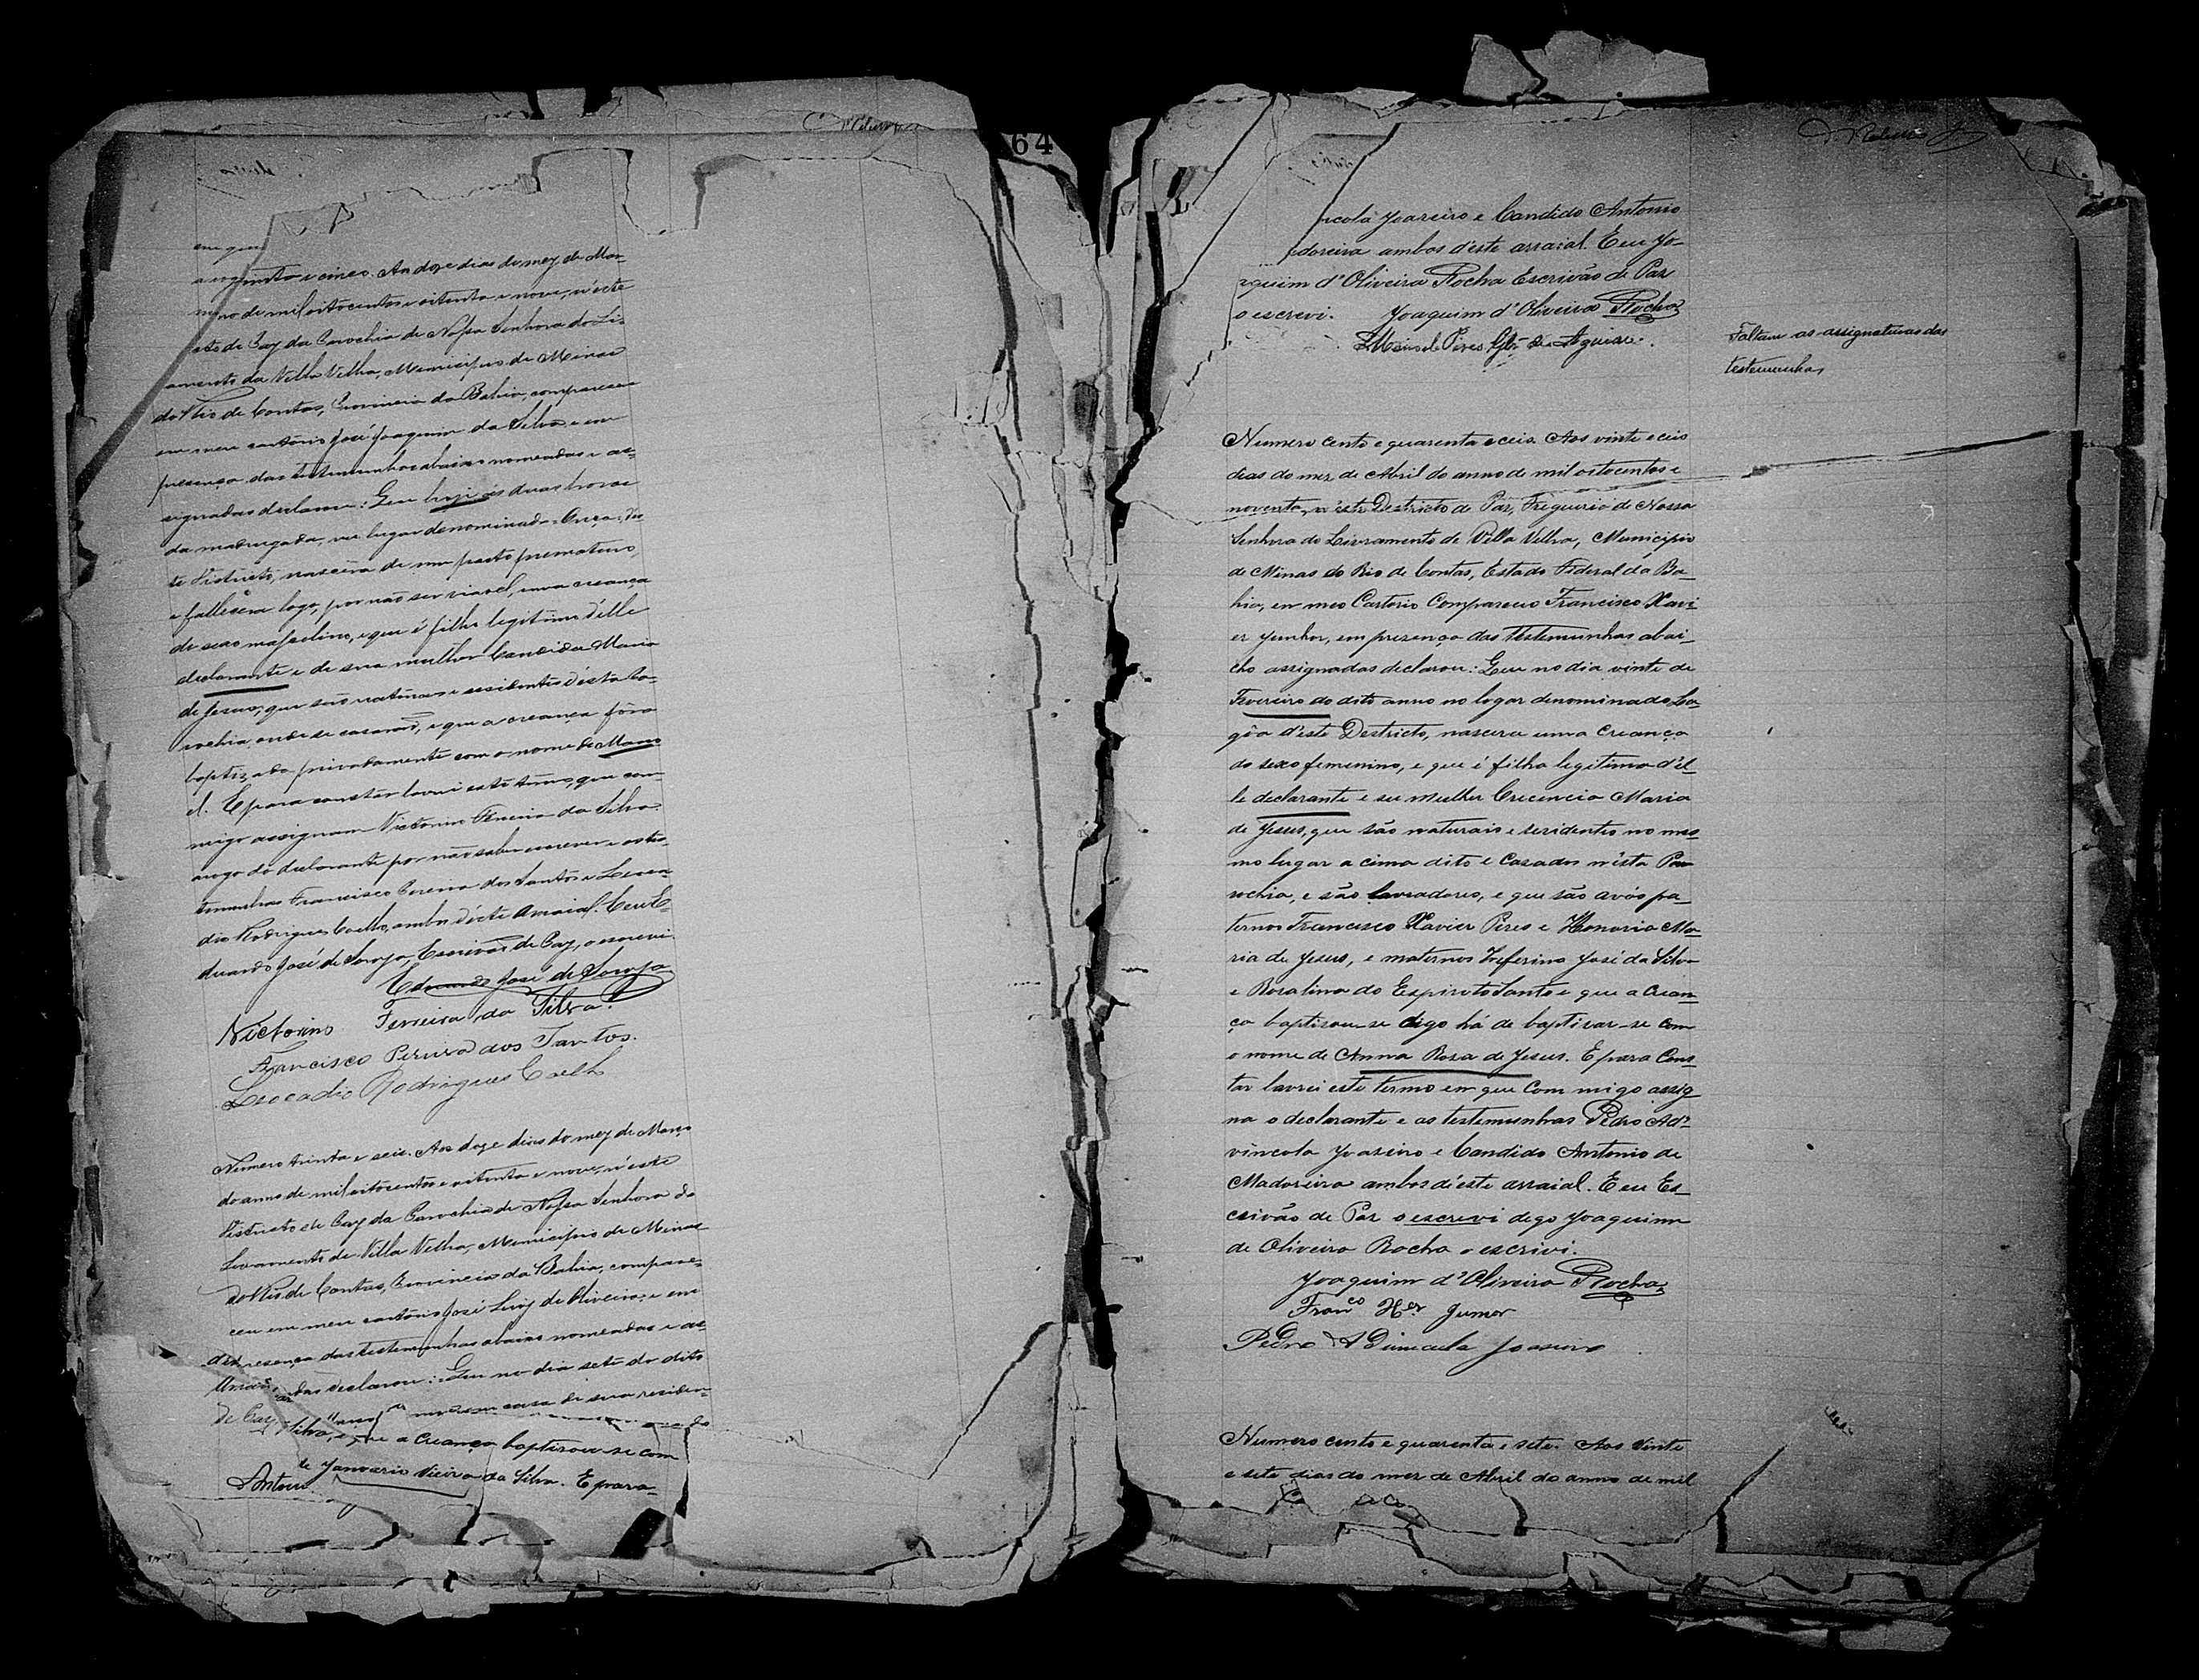 64
trinta e cinco. Aos doze dias do mez de Mar-
anno de mil oitocentos e oitenta e nove, n'este
de Paz da Parochia de Nossa Senhora do Li-
amento da Villa Velha, Municipio de Minas
do Rio de Contas, Provincia da Bahia, compareceu
em meu cartorio José Joaquim da Silva e em
presença das testemunhas abaixo nomeadas e as-
signadas declarou: Que hoje ás duas horas
da madrugada, no lugar denominado
te Districto, nascêra de um parto prematuro,
e fallecêra logo, por não ser viavel, uma creança
do sexo masculino, e que é filho legitimo d'elle
declarante e de sua mulher Candida Maria
de Jesus, que são naturaes e residentes d'esta Pa-
rochia, onde se casarão, e que a creança fôra
baptizada privadamente com o nome de Mano-
el. E para constar lavrei este termo, que com-
migo assignam Victorino Ferreira da Silva
a rogo do declarante por não saber escrever e as tes-
temunhas Francisco Pereira dos Santos e Leoca-
dio Rodrigues Coelho, ambos d'este Arraial. Eu E-
duardo José de Souza, Escrivão de Paz, o escrevi
Eduardo José de Souza
Victorino Ferreira da Silva
Francisco Pereira dos Santos.
Leocadio Rodrigues Coelho
Numero trinta e seis. Aos doze dias do mez de Março
do anno de mil oitocentos e oitenta e nove, n'este
Districto de Paz da Parochia de Nossa Senhora do
Livramento de Villa Velha, Municipio de Minas
do Rio de Contas, Provincia da Bahia, compare-
ceu em meu cartorio José Luiz de Oliveira, e em
presença das testemunhas abaixo nomeadas e as-
declarou: Que no dia sete do dito
de Paz em casa de sua residen-
Silva, e que a Creança baptisou-se com
de Januario Vieira da Silva. E para
Antonio
ncola Joazeiro e Candido Antonio
doreira ambos d'este arraial. E eu Jo-
aquim d'Oliveira Rocha Escrivão de Paz
o escrevi. Joaquim d'Oliveira Rocha
Manoel Pires de Aguiar.
Faltam as assignaturas das
testemunhas
Numero cento e quarenta e ceis. Aos vinte e ceis
dias do mez de Abril do anno de mil oitocentos e
noventa, n'este Destricto de Paz, Freguezia de Nossa
Senhora do Livramento de Villa Velha, Municipio
de Minas do Rio de Contas, Estado Federal da Ba-
hia, em meo Cartorio Compareceo Francisco Xavi
er Junhor, em presença das testemunhas abai-
cho assignadas declarou: Que no dia vinte de
Fevereiro do dito anno no logar denominado La-
gôa d'este Destricto, nasceu uma Creança
do sexo femenino, e que é filha legitima d'el-
le declarante e su mulher Crecencia Maria
de Jesus, que são naturais e rezidentes no mes
mo lugar a cima dito e Cazados n'esta Pa-
rochia, e são lavradores, e que são avós pa-
ternos Francisco Xavier Pires e Honoria Ma-
ria de Jesus, e maternos Zeferino José da Silva
e Rosalina do Espirito Santo e que a Crean-
ça baptisou-se digo há de baptisar-se com
o nome de Anna Roza de Jesus. E para Cons-
tar lavrei este termo em que Com migo assig
na o declarante e as testemunhas Pedro Ad-
vincola Joazeiro e Candido Antonio de
Madoreira ambos d'este arraial. E eu Es-
crivão de Paz o escrevi digo Joaquim
de Oliveira Rocha o escrivi.
Joaquim d'Oliveira Rocha
Franco Xer Junior
Pedro ADvincula Joaseiro
Numero cento e quarenta e sete. Aos vinte
e sete dias do mez de Abril do anno de mil